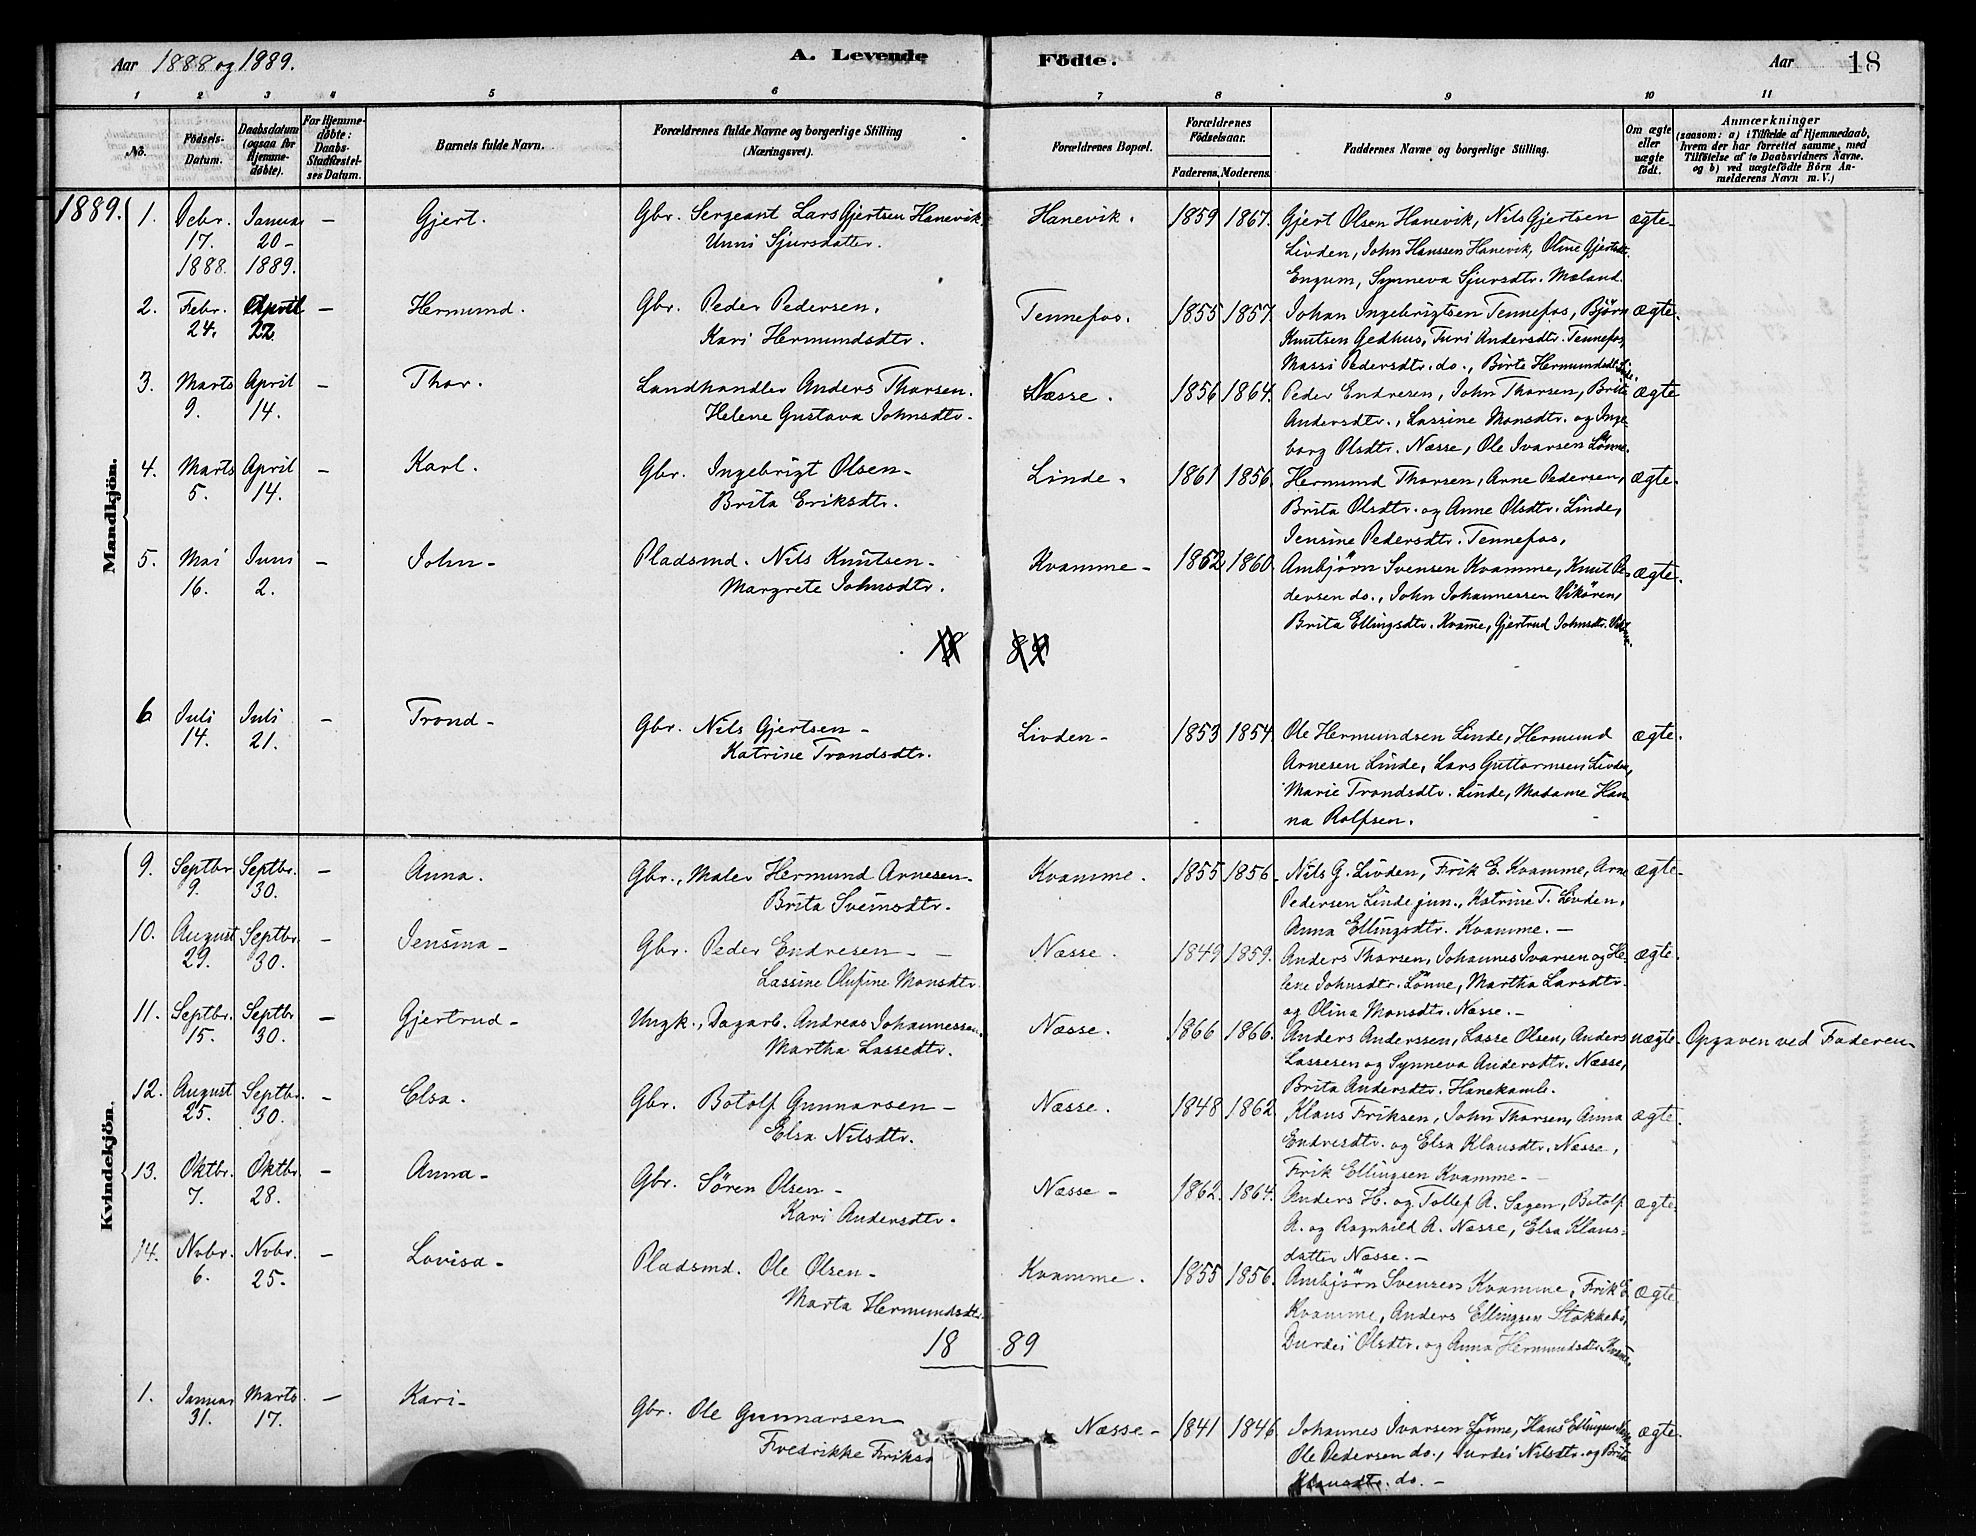 Aar 1888 og 1889. A. Levende Födte. Aar 18
1 2 3 4 5 6 7 8 9 10 11
No.
Födsels-
Datum.
Daabsdatum
(ogsaa for
Hjemme-
döbte).
For Hjemme-
döbte:
Daabs-
Stadfæstel-
ses Datum.
Barnets fulde Navn.
Forældrenes fulde Navne og borgerlige Stilling
(Næringsvei).
Forældrenes Bopæl.
Forældrenes
Födselsaar.
Faderens. Moderens.
Faddernes Navne og borgerlige Stilling.
Om ægte
eller
uægte
födt.
Anmærkninger
(saasom: a) i Tilfælde af Hjemmedaab,
hvem der har forrettet samme, med
Tilföielse af to Daabsvidners Navne.
og b) ved uægtefödte Börn An-
melderens Navn m. V.)
Mandkjön.
1889. 1. Decbr. Januar – Gjert. Gbr. Sergeant Lars Gjertsen Hanevik Hanevik. 1859 1867. Gjert Olsen Hanevik, Nils Gjertsen ægte-
17. 20- Unni Sjursdatter. Livden, John Hanssen Hanevik, Oline Gjertsdtr.
1888. 1889. Engum, Synneva Sjursdtr. Moland.
2. Febr. April – Hermund. Gbr. Peder Pedersen. Tennefos. 1855 1857. Johan Ingebrigtsen Tennefos, Björn ægte.
24. 22. Kari Hermundsdtr. Knutsen Gedhus, Turi Andersdtr. Tennefos,
Massi Pedersdtr. do., Birte Hermundsdtr.
3. Marts April – Thor. Landhandler Anders Thorsen. Næsse. 1856 1864. Peder Endresen, John Thorsen, Brita ægte
9. 14. Helene Gustava Johnsdtr. Andersdtr., Lassine Monsdtr. og Inge-
borg Olsdtr. Næsse, Ole Ivarsen Lönne.
4. Marts April – Karl. Gbr. Ingebrigt Olsen- Linde. 1861 1856. Hermund Thorsen, Arne Pedersen, ægte.
5. 14. Brita Eriksdtr. Brita Olsdtr. og Anne Olsdtr. Linde,
Jensine Pedersdtr. Tennefos,
5. Mai Juni – John- Pladsmd. Nils Knutsen- Kvamme- 1862 1860. Ambjörn Svensen Kvamme, Knut Pe- ægte.
16. 2. Margrete Johnsdtr. dersen do., John Johannessen Vikören,
Brita Ellingsdtr. Kvamme, Gjertrud Johnsdtr.
18 89
6 Juli Juli – Trond- Gbr. Nils Gjertsen- Livden- 1853 1854. Ole Hermundsen Linde, Hermund ægte.
14. 21. Katrine Trondsdtr. Arnesen Linde, Lars Guttormsen Livden,
Marie Trondsdtr. Linde, Madame Han-
na Rolfsen.
Kvindekjön.
9. Septbr Septbr. – Anna. Gbr., Maler Hermund Arnesen- Kvamme. 1855 1856. Nils G. Livden, Frik E. Kvamme, Arne ægte-
9. 30. Brita Sveinsdtr. Pedersen Linde jun., Katrine T. Livden,
Anna Ellingsdtr. Kvamme. –
10. August Septbr. – Jensina- Gbr. Peder Endresen- Næsse. 1849 1859. Anders Thorsen, Johannes Ivarsen og He- ægte.
29. 30. Lassine Olufine Monsdtr. lene Johnsdtr. Lönne, Martha Larsdtr.
og Olina Monsdtr. Næsse. –
11. Septbr. Septbr – Gjertrud- Ungk., Dagarb. Andreas Johannessen. Næsse. 1866 1866. Anders Anderssen, Lasse Olsen, Anders uægte- Opgaven ved Faderen-
15. 30. Martha Lassedtr. Lassesen og Synneva Andersdtr. Næsse,
Brita Andersdtr. Hanekamb.
12. August Septbr. – Elsa. Gbr. Botolf Gunnarsen- Næsse. 1848 1862. Klaus Friksen, John Thorsen, Anna ægte.
25. 30. Elsa Nilsdtr. Endresdtr. og Elsa Klausdtr. Næsse,
Frik Ellingsen Kvamme-
13. Oktbr. Oktbr. – Anna- Gbr. Sören Olsen- Næsse- 1862. 1864. Anders H. og Tollef A. Sagen, Botolf ægte.
7. 28. Kari Andersdtr. A. og Ragnhild A. Næsse, Elsa Klaus-
datter Næsse. –
14. Novbr. Novbr. – Lovisa- Pladsmd. Ole Olsen- Kvamme. 1855 1856. Ambjörn Svensen Kvamme, Frik E. ægte
6. 25. Marta Hermundsdtr. Kvamme, Anders Ellingsen Stokkebö,
Durdei Olsdtr. og Anna Hermundsdtr. Kvamme.
18 89
1. Januar Marts – Kari- Gbr. Ole Gunnarsen- Næsse- 1841 1846. Johannes Ivarsen Lönne, Hans Ellingsen ægte.
31. 17. Fredrikke Friks Ole Pedersen do., Durdei Nilsdtr. og Brita
Klausdtr. do. –